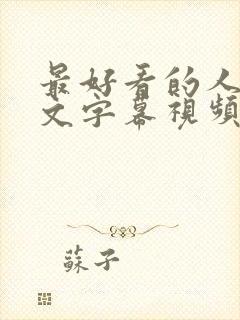 最好看的人
文字幕視頻
蘇子